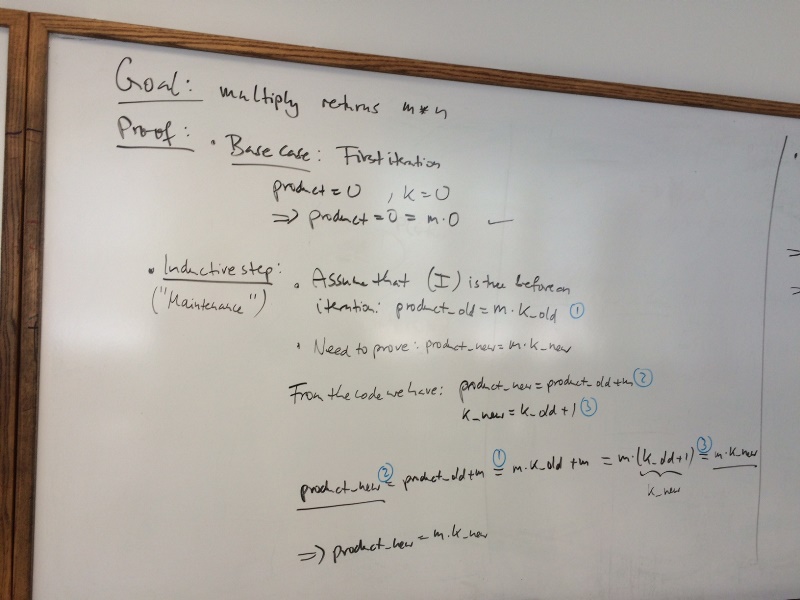 Goal: multiply returns m * n
Proof: • Base case: First iteration
product = 0 , k = 0
⇒ product = 0 = m·0 ✓
• Inductive step: • Assume that (I) is true before an
("Maintenance") iteration: product_old = m·k_old ①
• Need to prove: product_new = m·k_new
From the code we have: product_new = product_old + m ②
k_new = k_old + 1 ③
product_new =② product_old + m =① m·k_old + m = m·(k_old + 1) =③ m·k_new
k_new
⇒ product_new = m·k_new